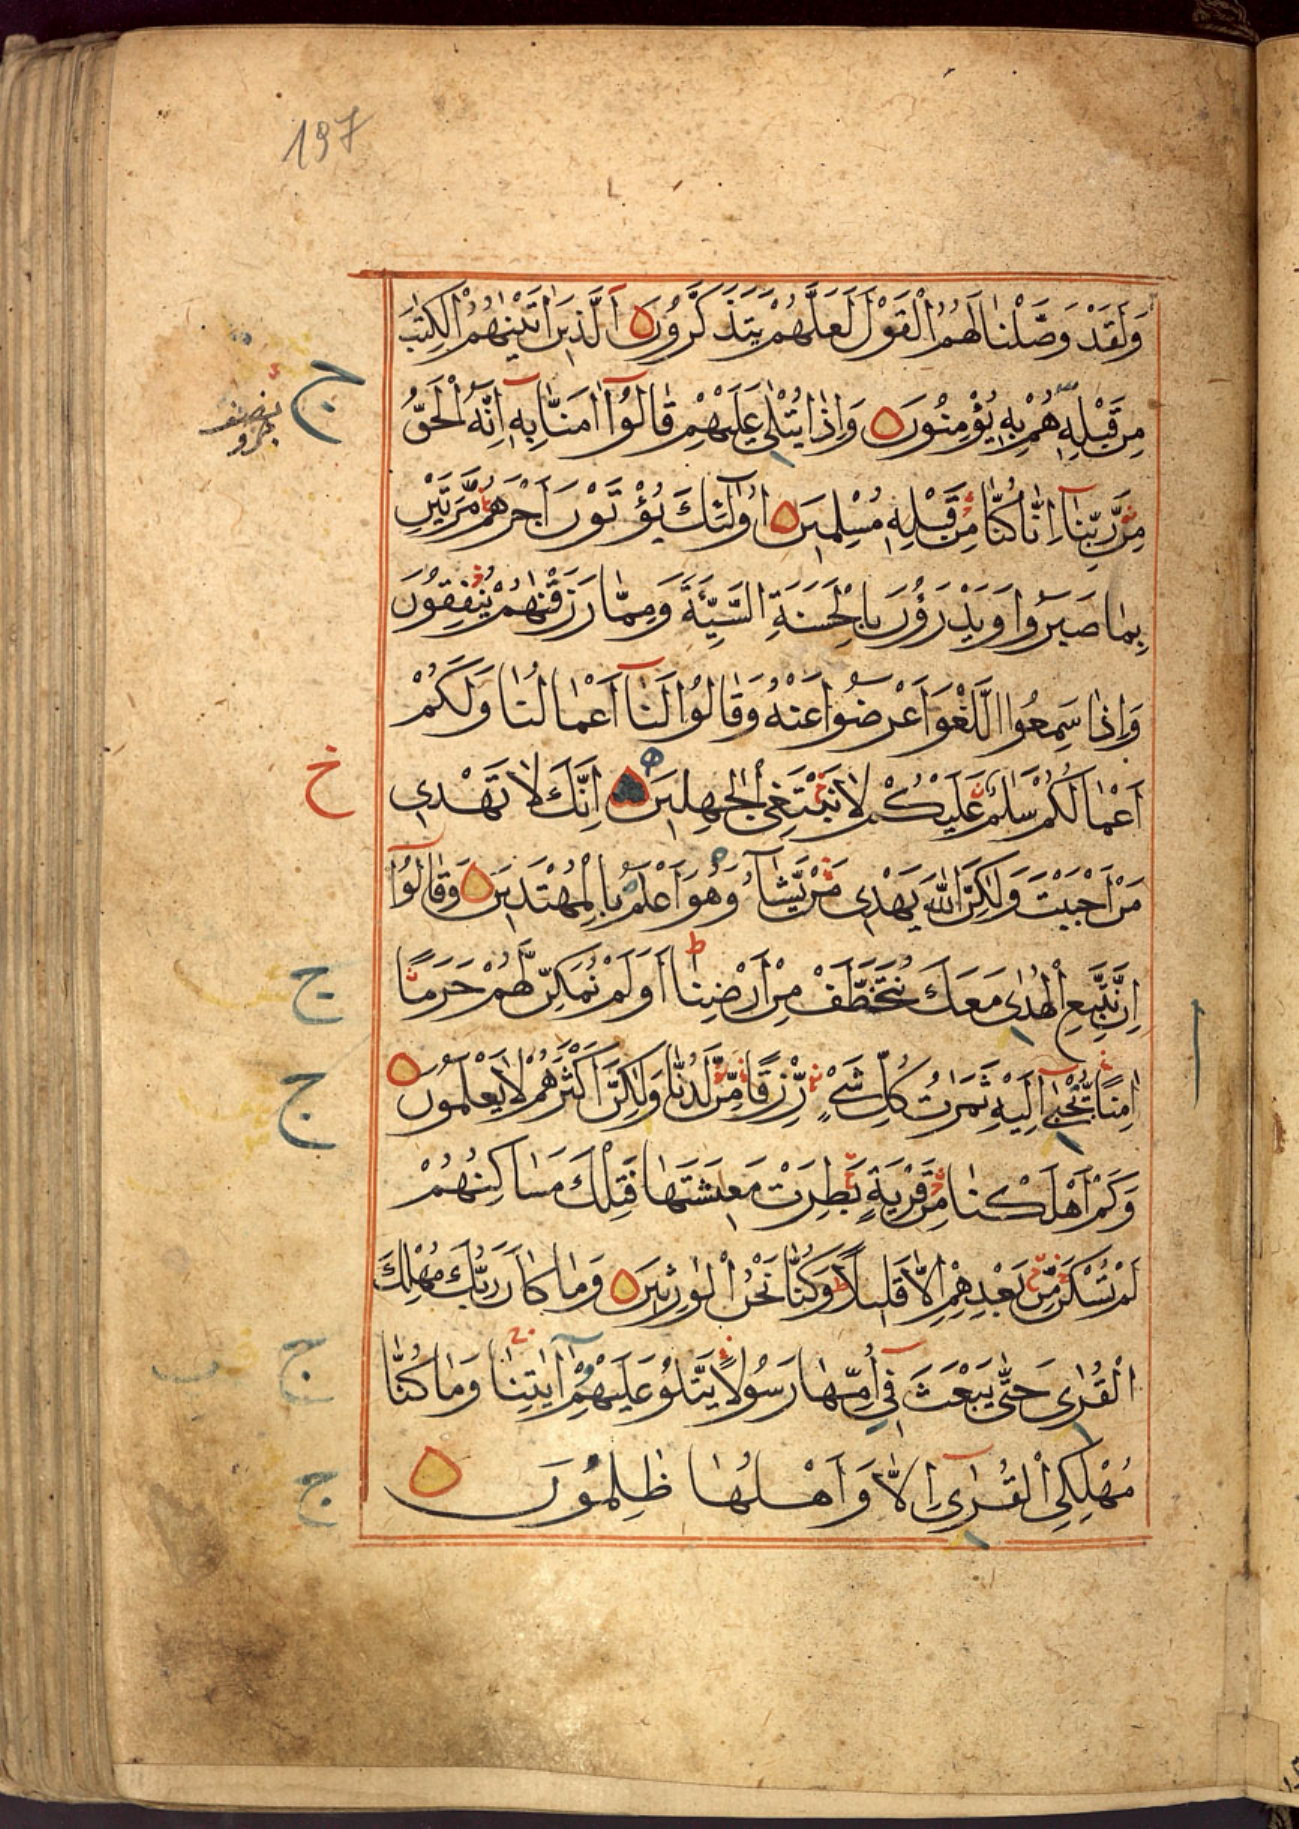 197
وَلَقَدْ وَصَّلْنَا لَهُمُ الْقَوْلَ لَعَلَّهُمْ يَتَذَكَّرُونَ اَلَّذِينَ اٰتَيْنٰهُمُ الْكِتٰبَ
مِنْ قَبْلِهٖ هُمْ بِهٖ يُؤْمِنُونَ وَاِذَا يُتْلٰى عَلَيْهِمْ قَالُوٓا اٰمَنَّا بِهٖٓ اِنَّهُ الْحَقُّ
مِنْ رَّبِّنَآ اِنَّا كُنَّا مِنْ قَبْلِهٖ مُسْلِمِينَ اُولٰٓئِكَ يُؤْتَوْنَ اَجْرَهُمْ مَّرَّتَيْنِ
بِمَا صَبَرُوا وَيَدْرَؤُنَ بِالْحَسَنَةِ السَّيِّئَةَ وَمِمَّا رَزَقْنٰهُمْ يُنْفِقُونَ
وَاِذَا سَمِعُوا اللَّغْوَ اَعْرَضُوا عَنْهُ وَقَالُوا لَنَآ اَعْمَالُنَا وَلَكُمْ
اَعْمَالُكُمْ سَلٰمٌ عَلَيْكُمْ لَا نَبْتَغِى الْجٰهِلِينَ اِنَّكَ لَا تَهْدِى
مَنْ اَحْبَبْتَ وَلٰكِنَّ اللّٰهَ يَهْدِى مَنْ يَّشَآءُ وَهُوَ اَعْلَمُ بِالْمُهْتَدِينَ وَقَالُوٓا
اِنْ نَّتَّبِعِ الْهُدٰى مَعَكَ نُتَخَطَّفْ مِنْ اَرْضِنَا اَوَلَمْ نُمَكِّنْ لَّهُمْ حَرَمًا
اٰمِنًا يُّجْبٰٓى اِلَيْهِ ثَمَرٰتُ كُلِّ شَىْءٍ رِّزْقًا مِّنْ لَّدُنَّا وَلٰكِنَّ اَكْثَرَهُمْ لَا يَعْلَمُونَ
وَكَمْ اَهْلَكْنَا مِنْ قَرْيَةٍ بَطِرَتْ مَعِيشَتَهَا فَتِلْكَ مَسَاكِنُهُمْ
لَمْ تُسْكَنْ مِّنْ بَعْدِهِمْ اِلَّا قَلِيلًا وَكُنَّا نَحْنُ الْوٰرِثِينَ وَمَا كَانَ رَبُّكَ مُهْلِكَ
الْقُرٰى حَتّٰى يَبْعَثَ فِىٓ اُمِّهَا رَسُولًا يَّتْلُو عَلَيْهِمْ اٰيٰتِنَا وَمَا كُنَّا
مُهْلِكِى الْقُرٰٓى اِلَّا وَاَهْلُهَا ظٰلِمُونَ
ج
خ
ج
ج
ج
ج